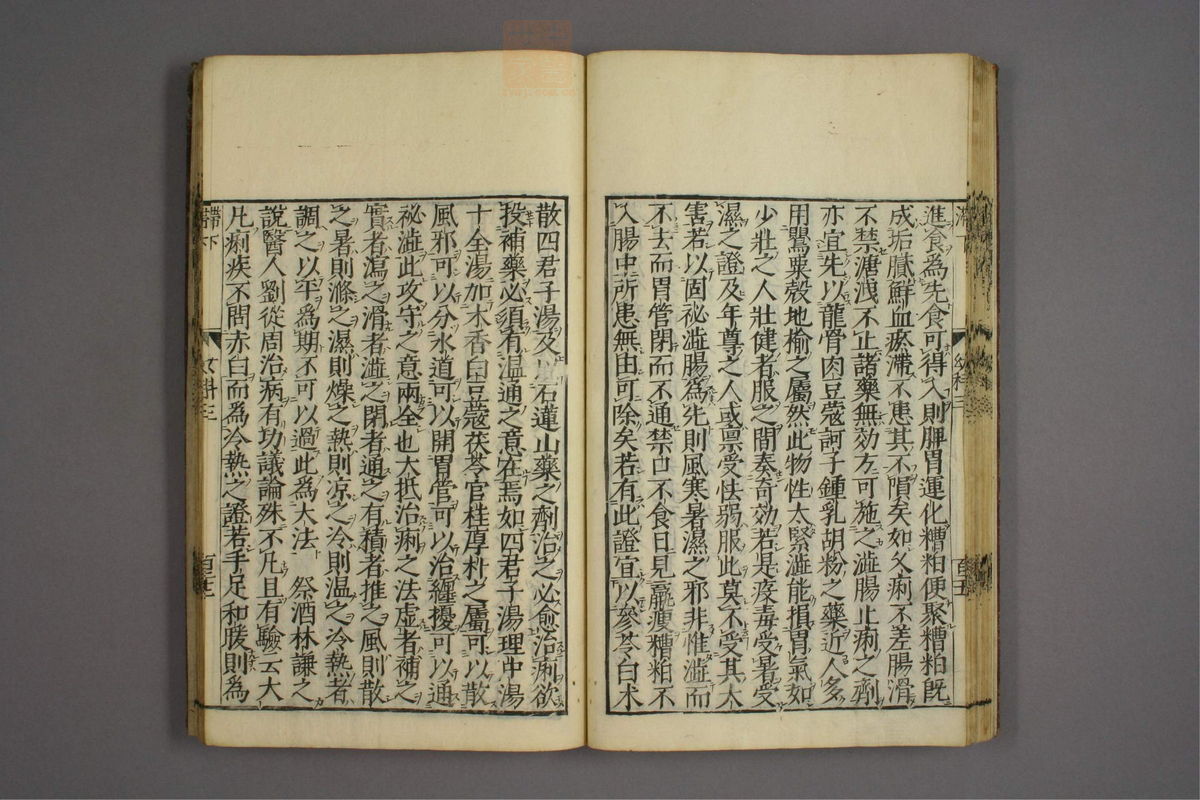 進食為先食可得入則脾胃運化糟粕便聚糟粕旣
成垢膩鮮血瘀滯不患其不隕矣如久痢不差腸滑
不禁溏洩不止諸藥無効方可施之澁腸止痢之劑
亦宜先以龍骨肉豆蔻訶子鍾乳胡粉之藥近人多
用罌粟殼地榆之屬然此物性太緊澁能損胃氣如
少壯之人壯健者服之間奏奇効若是疫毒受暑受
濕之證及年尊之人或禀受怯弱服此莫不受其大
害若以固祕澁腸為先則風寒暑濕之邪非惟澁而
不去而胃管閉而不通禁口不食日見羸瘦糟粕不
入腸中所患無由可除矣若有此證宜以參苓白术
散四君子湯及以石蓮山藥之劑治之必愈治痢欲
投補藥必須有温通之意在焉如四君子湯理中湯
十全湯加木香白豆蔻茯苓官桂厚朴之屬可以散
風邪可以分水道可以開胃管可以治纏擾可以通
祕澁此攻守之意兩全也大抵治痢之法虛者補之
實者瀉之滑者澁之閉者通之有積者推之風則散
之暑則滌之濕則燥之熱則凉之冷則温之冷熱者
調之以平為期不可以過此為大法 祭酒林謙之
說醫人劉從周治病有功議論殊不凡且有驗云大
凡痢疾不問赤白而為冷熱之證若手足和暖則為
滯下